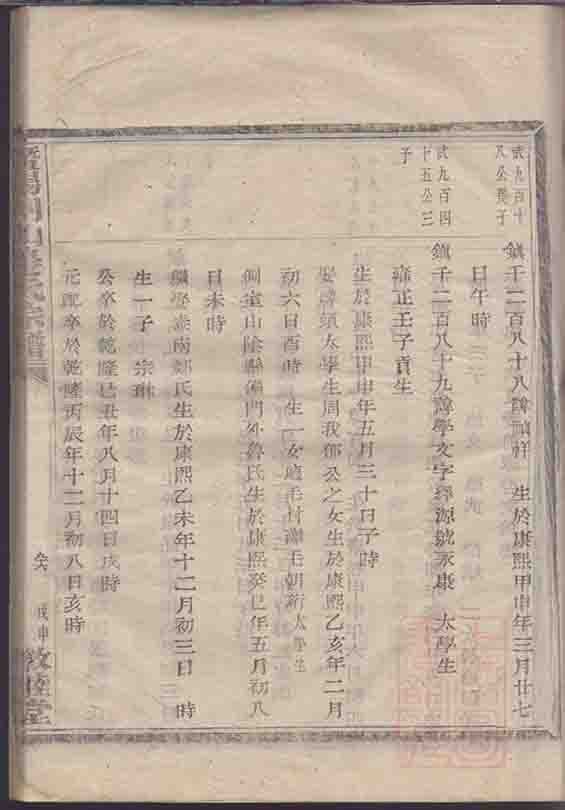 貮九百十
八公長子
鎮千二百八十八諱 祥 生於康熙甲申年三月廿七
日午時
貮九百四
十五公三
子
鎮千二百八十九諱學文字經源號永康 太學生
雍正壬子貢生
生於康熙甲申年五月三十日子時
娶 頭太學生周我 公之女生於康熙乙亥年二月
初六日酉時 生一女適毛村 毛朝 太學生
側室山陰縣 門外魯氏生於康熙癸巳年五月初八
日未時
繼娶 南鄭氏生於康熙乙未年十二月初三日 時
生一子 宗琳
公卒於乾隆己丑年八月十四日戌時
元配卒於乾隆丙辰年十二月初八日亥時
宗譜
戊申 敦睦堂